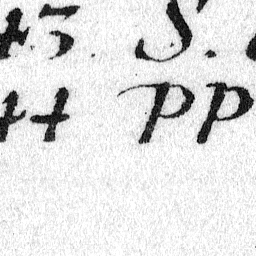 43. S.
44 PP